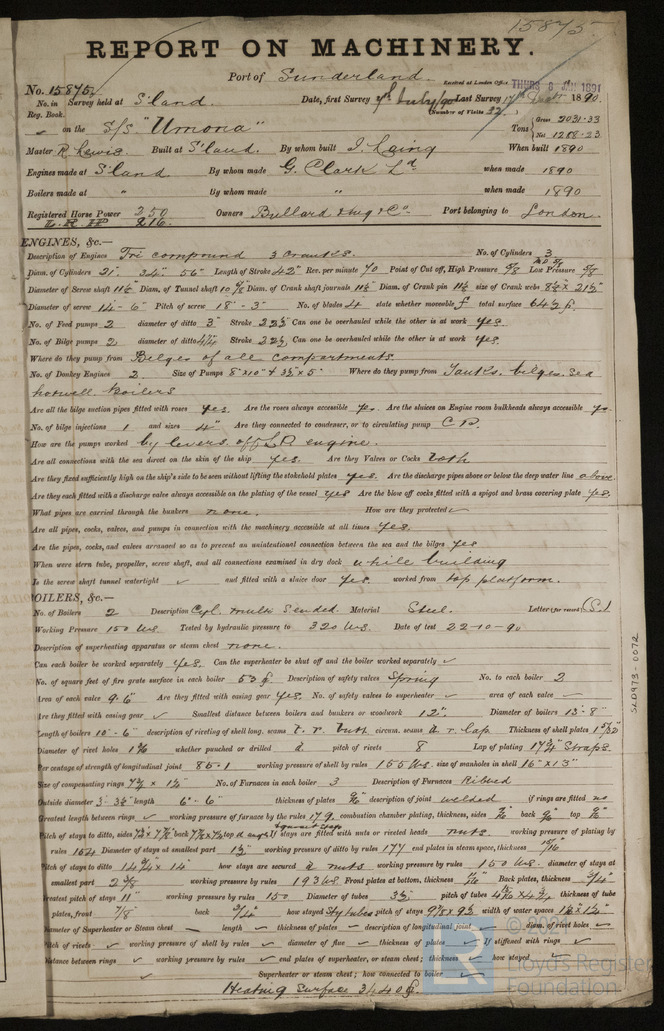 15875
REPORT ON MACHINERY.
Port of Sunderland.
Received at London Office THURS 8 JAN 1891
No. 15875.
No. in Survey held at S'land. Date, first Survey Last Survey 1890.
Reg. Book. (Number of Visits 32)
" on the S/S "Umona" Tons Gross 2031.33 Net
Master R. Lewis. Built at S'land. By whom built J. Laing When built 1890
Engines made at S'land By whom made G. Clark Ld when made 1890
Boilers made at " By whom made " when made 1890
Registered Horse Power 250 Owners Bullard King & Co Port belonging to London.
ENGINES, &c.—
Description of Engines Tri compound 3 Cranks. No. of Cylinders 3
Diam. of Cylinders 21" 34" 56" Length of Stroke 42" Rev. per minute 70 Point of Cut off, High Pressure 5/8 Low Pressure 5/8
Diameter of Screw shaft 11½" Diam. of Tunnel shaft Diam. of Crank shaft journals 11½" Diam. of Crank pin 11½ size of Crank webs 8½" × 21½"
Diameter of screw 14'-6" Pitch of screw 18'-3" No. of blades 4 state whether moveable total surface 64½ f.
No. of Feed pumps 2 diameter of ditto 3" Stroke 22½" Can one be overhauled while the other is at work yes.
No. of Bilge pumps 2 diameter of ditto Stroke 22½ Can one be overhauled while the other is at work yes.
Where do they pump from Bilges of all compartments.
No. of Donkey Engines 2 Size of Pumps 8"×10" & 3½"×5" Where do they pump from Tanks, bilges, sea
hotwell boilers
Are all the bilge suction pipes fitted with roses yes. Are the roses always accessible yes. Are the sluices on Engine room bulkheads always accessible yes
No. of bilge injections 1 and sizes 4" Are they connected to condenser, or to circulating pump C.P.
How are the pumps worked by levers off L.P. engine.
Are all connections with the sea direct on the skin of the ship yes. Are they Valves or Cocks both
Are they fixed sufficiently high on the ship's side to be seen without lifting the stokehold plates yes. Are the discharge pipes above or below the deep water line above
Are they each fitted with a discharge valve always accessible on the plating of the vessel yes Are the blow off cocks fitted with a spigot and brass covering plate yes.
What pipes are carried through the bunkers none. How are they protected ✓
Are all pipes, cocks, valves, and pumps in connection with the machinery accessible at all times yes.
Are the pipes, cocks, and valves arranged so as to prevent an unintentional connection between the sea and the bilges yes
When were stern tube, propeller, screw shaft, and all connections examined in dry dock while building
Is the screw shaft tunnel watertight ✓ and fitted with a sluice door yes. worked from top platform.
BOILERS, &c.—
No. of Boilers 2 Description Cyl. mult S. ended. Material Steel. Letter (for record) (S.)
Working Pressure 150 lbs Tested by hydraulic pressure to 320 lbs. Date of test 22-10-90
Description of superheating apparatus or steam chest none.
Can each boiler be worked separately yes. Can the superheater be shut off and the boiler worked separately ✓
No. of square feet of fire grate surface in each boiler 50 f. Description of safety valves Spring No. to each boiler 2
Area of each valve 9.6" Are they fitted with easing gear yes. No. of safety valves to superheater ✓ area of each valve ✓
Are they fitted with easing gear ✓ Smallest distance between boilers and bunkers or woodwork 12". Diameter of boilers 13'-8"
Length of boilers 10'-6" description of riveting of shell long. seams t.r. butt circum. seams d.r. lap Thickness of shell plates
Diameter of rivet holes whether punched or drilled d. pitch of rivets 8 Lap of plating 17¾" Straps.
Percentage of strength of longitudinal joint 85.1 working pressure of shell by rules 155 lbs. size of manholes in shell 16" × 13"
Size of compensating rings 7½ × 1½" No. of Furnaces in each boiler 3 Description of Furnaces Ribbed
Outside diameter 3'-3½" length 6'-6" thickness of plates description of joint welded if rings are fitted no
Greatest length between rings ✓ working pressure of furnace by the rules 179 combustion chamber plating, thickness, sides back top
Pitch of stays to ditto, sides back top If stays are fitted with nuts or riveted heads nuts. working pressure of plating by
rules 154 Diameter of stays at smallest part 1½ working pressure of ditto by rules 177 end plates in steam space, thickness
Pitch of stays to ditto how stays are secured d nuts working pressure by rules 150 lbs. diameter of stays at
smallest part 2 3/8 working pressure by rules 193 lbs Front plates at bottom, thickness Back plates, thickness
Greatest pitch of stays 11" working pressure by rules 150 Diameter of tubes 3½ pitch of tubes thickness of tube
plates, front 7/8" back how stayed Sty tubes pitch of stays width of water spaces
Diameter of Superheater or Steam chest — length ✓ thickness of plates ✓ description of longitudinal joint ✓ diam. of rivet holes ✓
Pitch of rivets ✓ working pressure of shell by rules ✓ diameter of flue ✓ thickness of plates ✓ If stiffened with rings ✓
Distance between rings ✓ working pressure by rules ✓ end plates of superheater, or steam chest; thickness ✓ how stayed ✓
✓ Superheater or steam chest; how connected to boiler ✓
Heating surface 3440 f.
SLD973-0072
© 2021
Lloyd's Register
Foundation